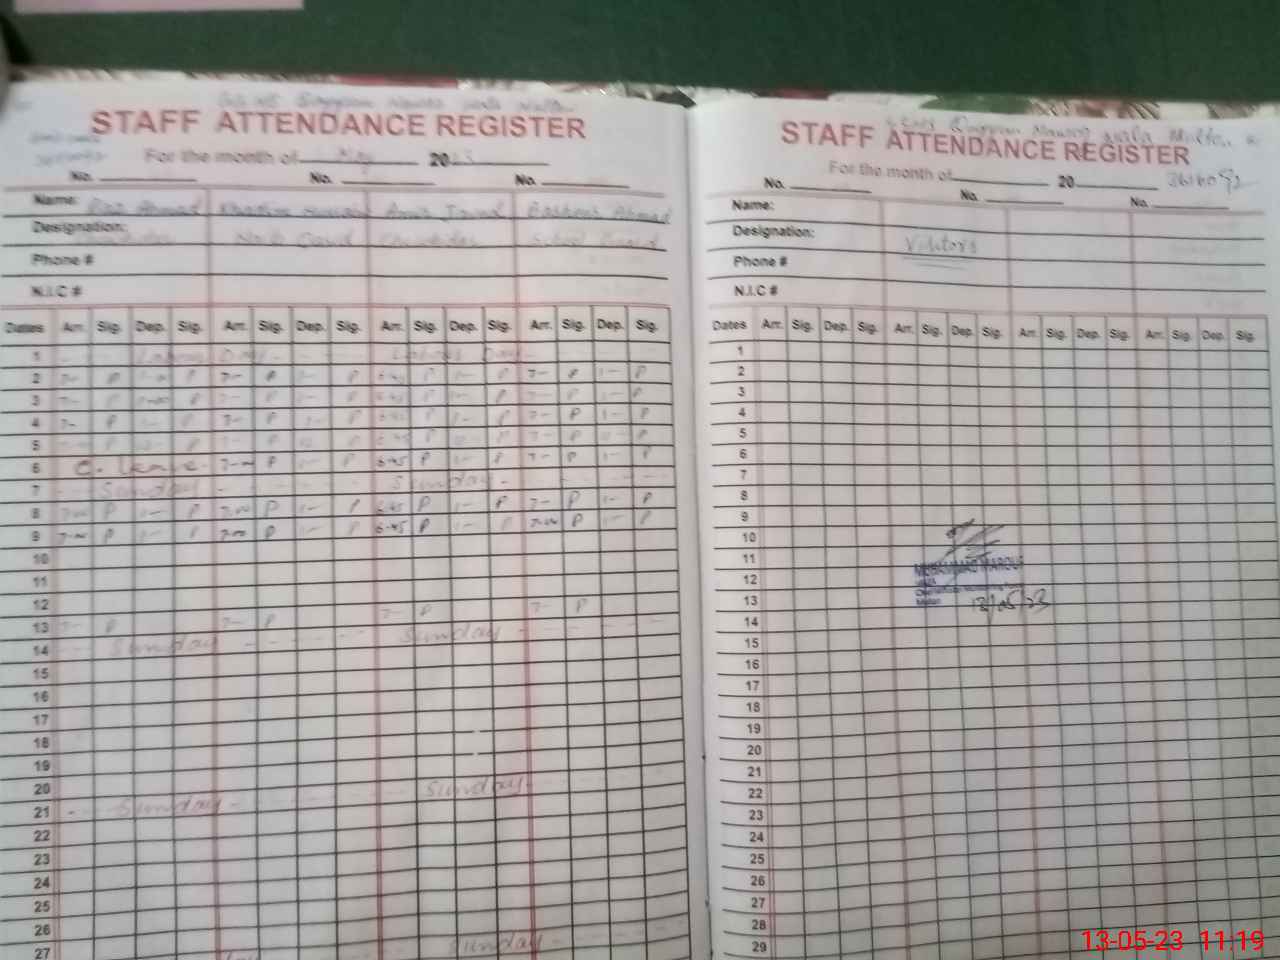 STAFF ATTENDANCE REGISTER
For the month of May 2023
No. No. No.
Name: Riaz Ahmad Khadim Hussain Amir Javed Basheer Ahmad
Designation: Naib Qasid Chowkidar School Guard
Phone #
N.I.C #
Dates Arr. Sig. Dep. Sig. Arr. Sig. Dep. Sig. Arr. Sig. Dep. Sig. Arr. Sig. Dep. Sig.
1 Labour Day Labour Day
2 7- P 1- P 7- P 1- P 6-45 P 1- P 7- P 1- P
3 7- P 1-00 P 7- P 1- P 6-45 P 1- P 7- P 1- P
4 7- P 1- P 7- P 1- P 6-45 P 1- P 7- P 1- P
5 P P 7- P P 6-45 P P 7- P P
6 C. Leave. 7-00 P 1- P 6-45 P 1- P 7- P 1- P
7 Sunday Sunday
8 7-00 P 1- P 7-00 P 1- P 6-45 P 1- P 7- P 1- P
9 7-00 P 1- P 7-00 P 1- P 6-45 P 1- P 7-00 P 1- P
10
11
12
13 7- P 7- P 7- P 7- P
14 Sunday Sunday
15
16
17
18
19
20
21 Sunday Sunday
22
23
24
25
26
27
Sunday
STAFF ATTENDANCE REGISTER
For the month of 20
No. No. No.
Name:
Designation: Visitors
Phone #
N.I.C #
Dates Arr. Sig. Dep. Sig. Arr. Sig. Dep. Sig. Arr. Sig. Dep. Sig. Arr. Sig. Dep. Sig.
1
2
3
4
5
6
7
8
9
10
11
12
13
14
15
16
17
18
19
20
21
22
23
24
25
26
27
28
29
MUHAMMAD MAROUF
13/05/23
13-05-23 11:19